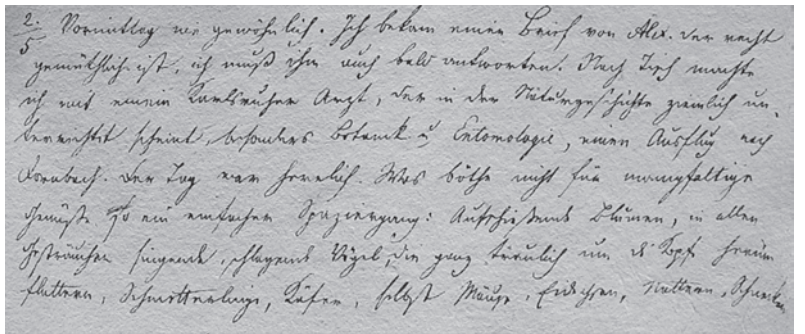 2. Vormittag wie gewöhnlich. Ich bekam einen Brief von Alex. der recht
5 gemüthlich ist, ich muß ihm auch bald antworten. Nach Tisch machte
ich mit einem Karlsruher Arzt, der in der Naturgeschichte ziemlich un-
terrichtet scheint, besonders Botanik u Entomologie, einen Ausflug nach
Der Tag war herrlich. Was böthe nicht für mannfaltige
Genüße so ein einfacher Spaziergang: Aufschießende Blumen, in allen
Gesträuchen singende, schlagende Vögel, die ganz traulich um d Kopf herum
flattern, Schmetterlinge, Käfer, selbst Mäuse, Eidechsen, Nattern, Schnecken